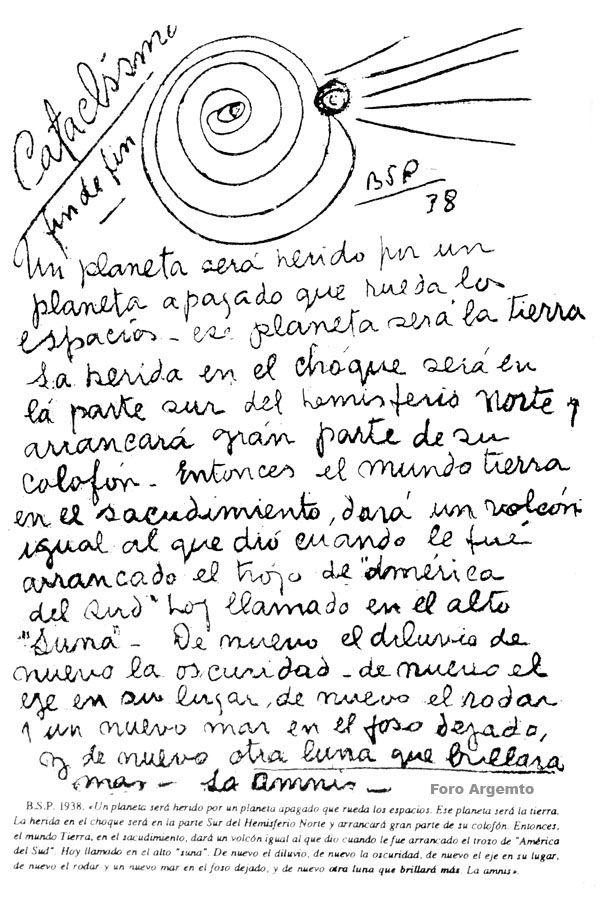 Cataclismo
fin de fin
BSP
38
Un planeta será herido por un
planeta apagado que rueda los
espacios - ese planeta será la tierra
La herida en el choque será en
la parte sur del hemisferio Norte y
arrancará grán parte de su
colofón - Entonces el mundo tierra
en el sacudimiento, dará un volcón
igual al que dió cuando le fué
arrancado el trozo de "América
del Sud" hoy llamado en el alto
"Suna" - De nuevo el diluvio de
nuevo la oscuridad - de nuevo el
eje en su lugar, de nuevo el rodar
y un nuevo mar en el foso dejado,
y de nuevo otra luna que brillara
mas - La amnis -
Foro Argemto
B.S.P. 1938. «Un planeta será herido por un planeta apagado que rueda los espacios. Ese planeta será la tierra.
La herida en el choque será en la parte Sur del Hemisferio Norte y arrancará gran parte de su colofón. Entonces,
el mundo Tierra, en el sacudimiento, dará un volcán igual al que dio cuando le fue arrancado el trozo de "América
del Sud". Hoy llamado en el alto "suna". De nuevo el diluvio, de nuevo la oscuridad, de nuevo el eje en su lugar,
de nuevo el rodar y un nuevo mar en el foso dejado, y de nuevo otra luna que brillará más. La amnis».